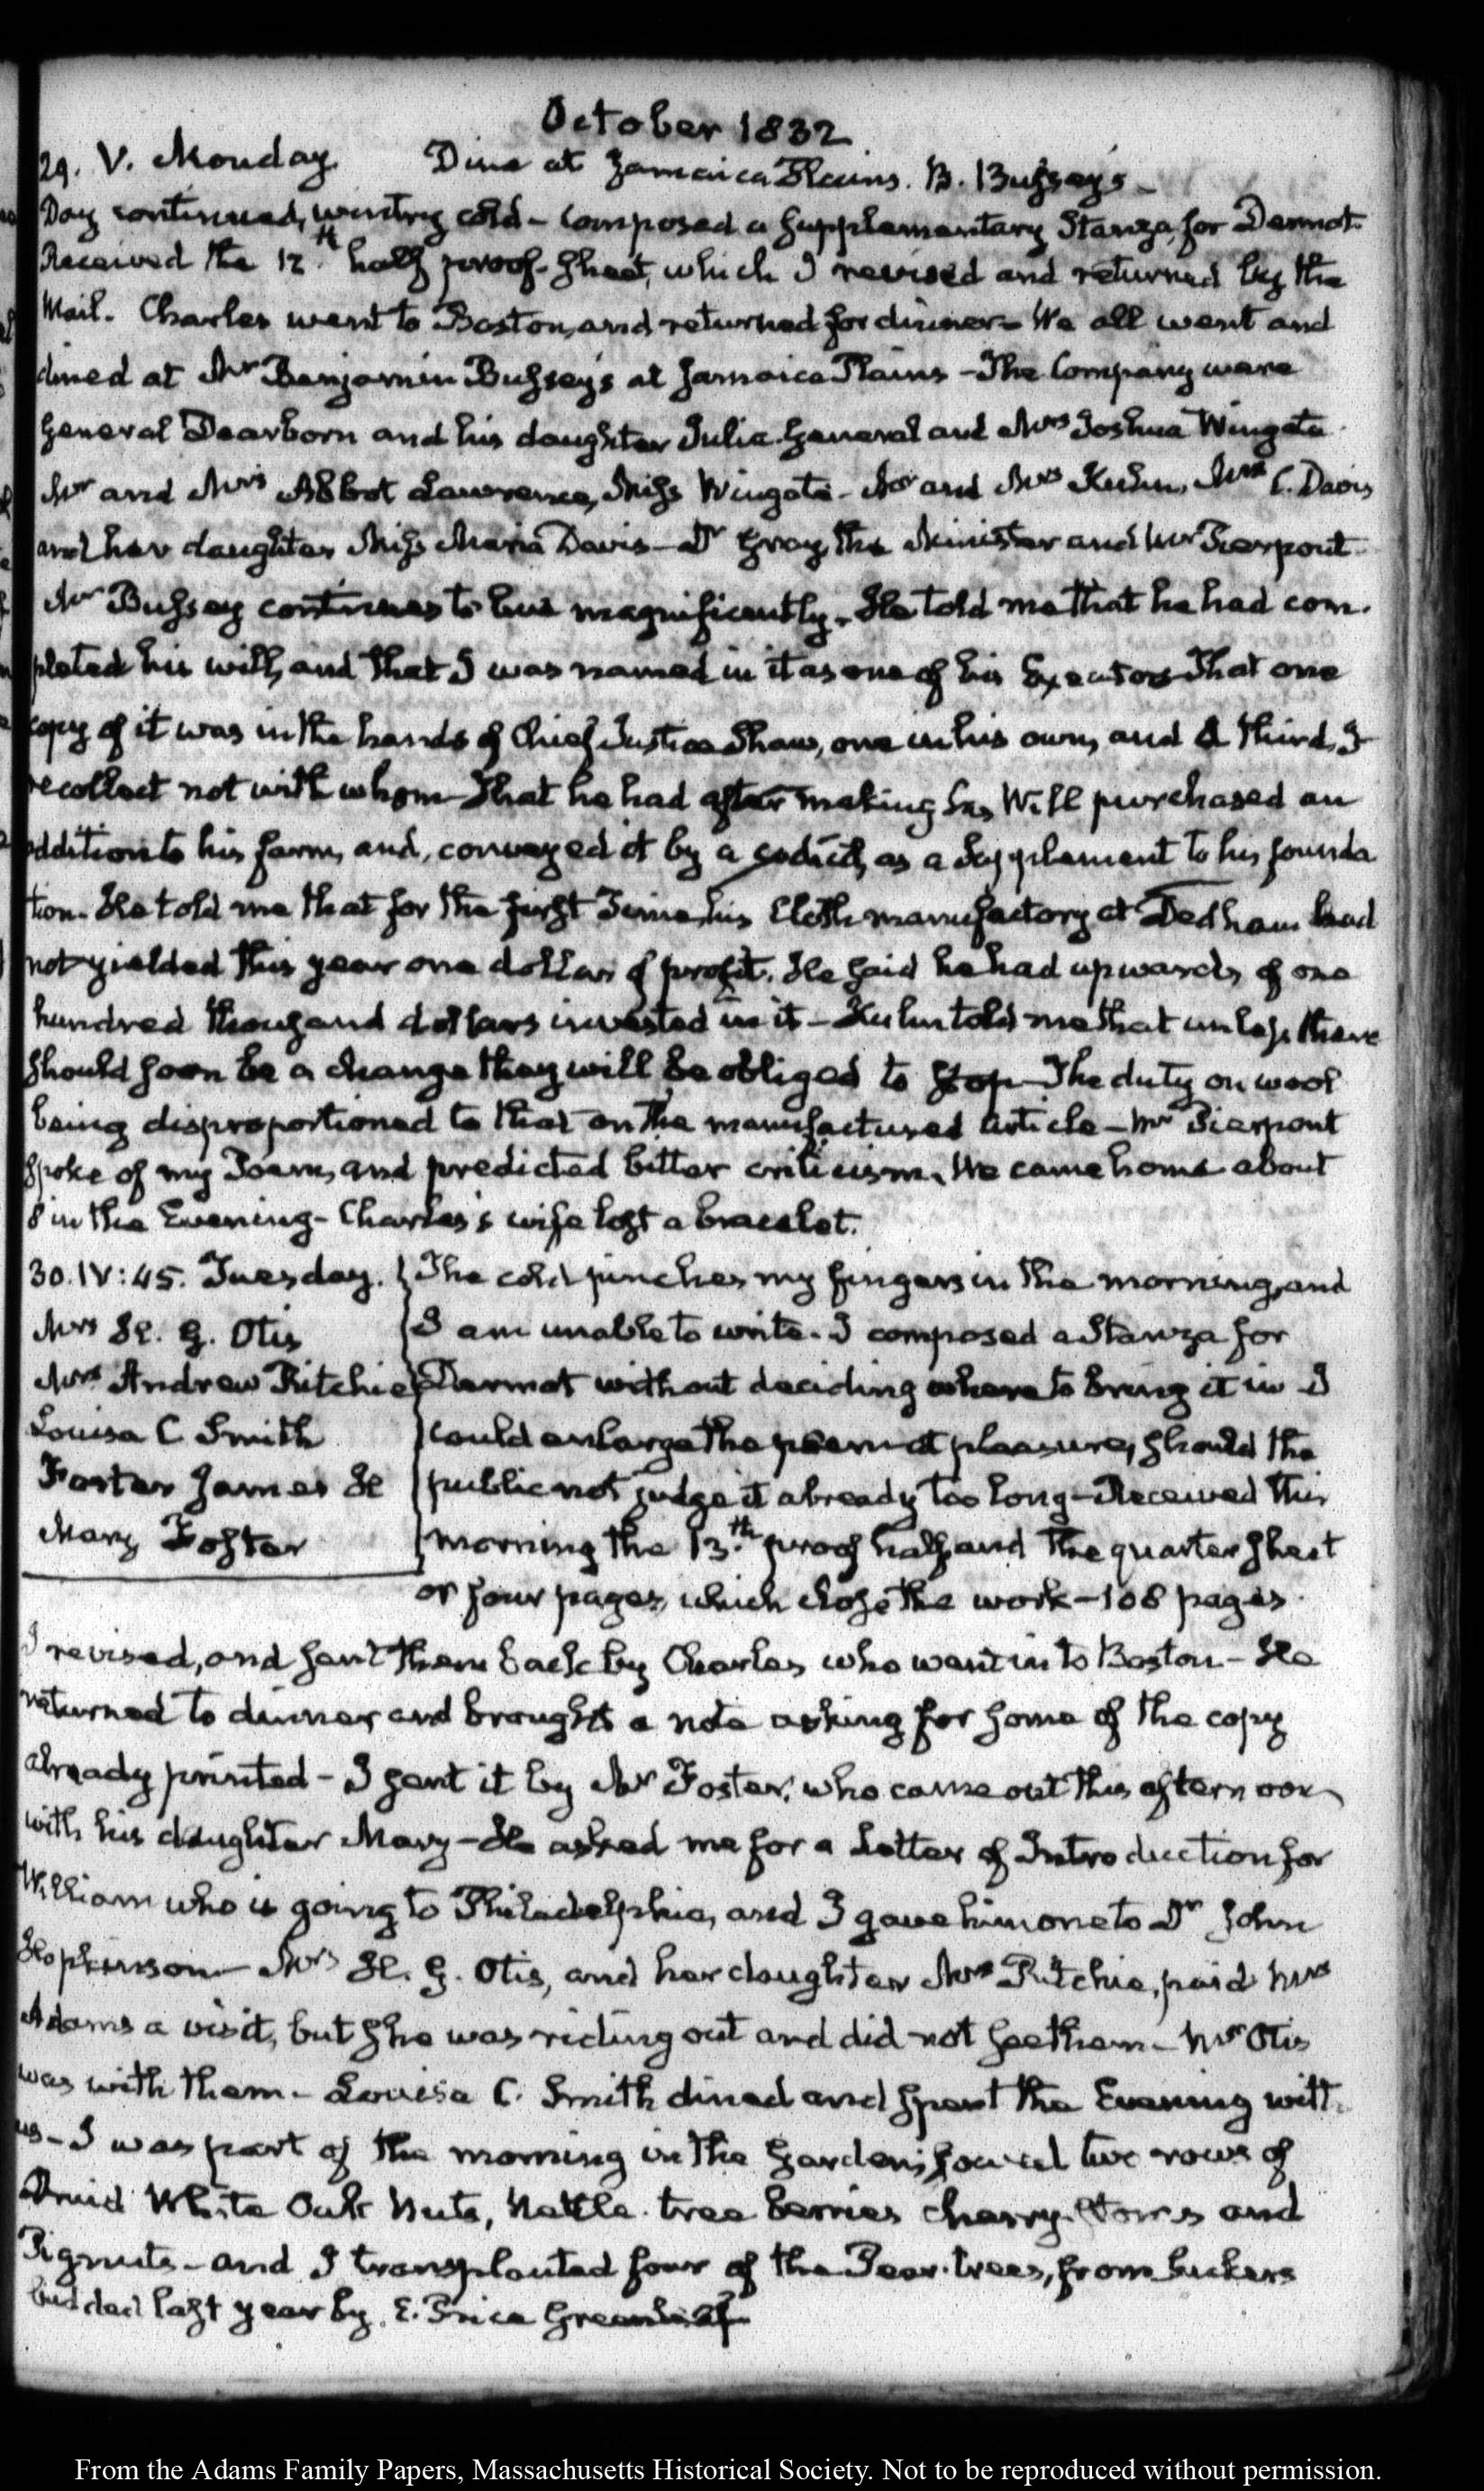 October 1832
29. V. Monday. Dine at Jamaica Plains. B. Bussey's—
Day continued, wintry cold — Composed a supplementary Stanza for Dermot.
Received the 12th half proof-sheet, which I revised and returned by the
Mail. Charles went to Boston, and returned for dinner — We all went and
dined at Mr Benjamin Bussey's at Jamaica Plains — The Company were
General Dearborn and his daughter Julia. General and Mrs Joshua Wingate
Mr and Mrs Abbot Lawrence, Miss Wingate — Mr and Mrs Kuhn, Mrs C. Davis
and her daughter Miss Maria Davis — Dr Gray, the Minister and Mr Pierpont.
Mr Bussey continues to live magnificently. He told me that he had com-
pleted his will, and that I was named in it as one of his Executors That one
copy of it was in the hands of Chief Justice Shaw, one in his own, and a third, I
recollect not with whom — That he had after making his Will purchased an
addition to his farm, and, conveyed it by a codicil, as a Supplement to his founda
tion. He told me that for the first Time, his Cloth manufactory at Dedham had
not yielded this year one dollar of profit. He said he had upwards of one
hundred thousand dollars invested in it — Kuhn told me that unless there
should soon be a change they will be obliged to stop — The duty on wool
being disproportioned to that on the manufactured article — Mr Pierpont
spoke of my Poem, and predicted bitter criticism. We came home about
8 in the Evening — Charles's wife lost a bracelet.
30. IV:45. Tuesday. The cold pinches my fingers in the morning, and
Mrs H. G. Otis I am unable to write. I composed a Stanza for
Mrs Andrew Ritchie Dermot without deciding where to bring it in I
Louisa C Smith could enlarge the poem at pleasure, should the
Foster James H public not judge it already too long — Received this
Mary Foster morning the 13.th proof half, and the quarter sheet
or four pages, which close the work — 108 pages.
I revised, and sent them back by Charles who went in to Boston — He
returned to dinner and brought a note asking for some of the copy
already printed — I sent it by Mr Foster, who came out this afternoon
with his daughter Mary — He asked me for a Letter of Introduction for
William who is going to Philadelphia, and I gave him one to Dr John
Hopkinson — Mrs H. G. Otis, and her daughter Mrs Ritchie, paid Mrs
Adams a visit, but she was riding out and did not see them — Mr Otis
was with them — Louisa C. Smith dined and spent the Evening with
us — I was part of the morning in the Garden; sowed two rows of
Druid White Oak Nuts, Nettle-tree berries cherry-stones and
Pignuts — and I transplanted four of the Pear-trees, from suckers
budded last year by E. Price Greenleaf

From the Adams Family Papers, Massachusetts Historical Society. Not to be reproduced without permission.